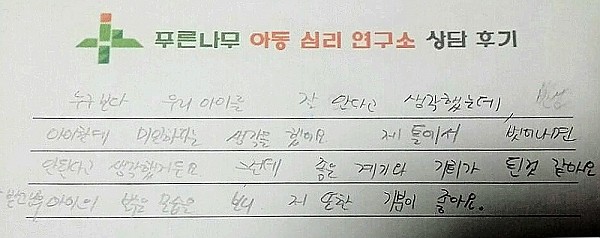 푸른나무 아동 심리 연구소 상담 후기
누구보다 우리 아이를 잘 안다고 생각했는데,
아이한테 미안하다는 생각을 했어요. 제 틀에서 벗어나면
안된다고 생각했거든요. 근데 좋은 계기와 기회가 된것 같아요
아이의 밝은 모습을 보니 제 또한 기분이 좋아요.